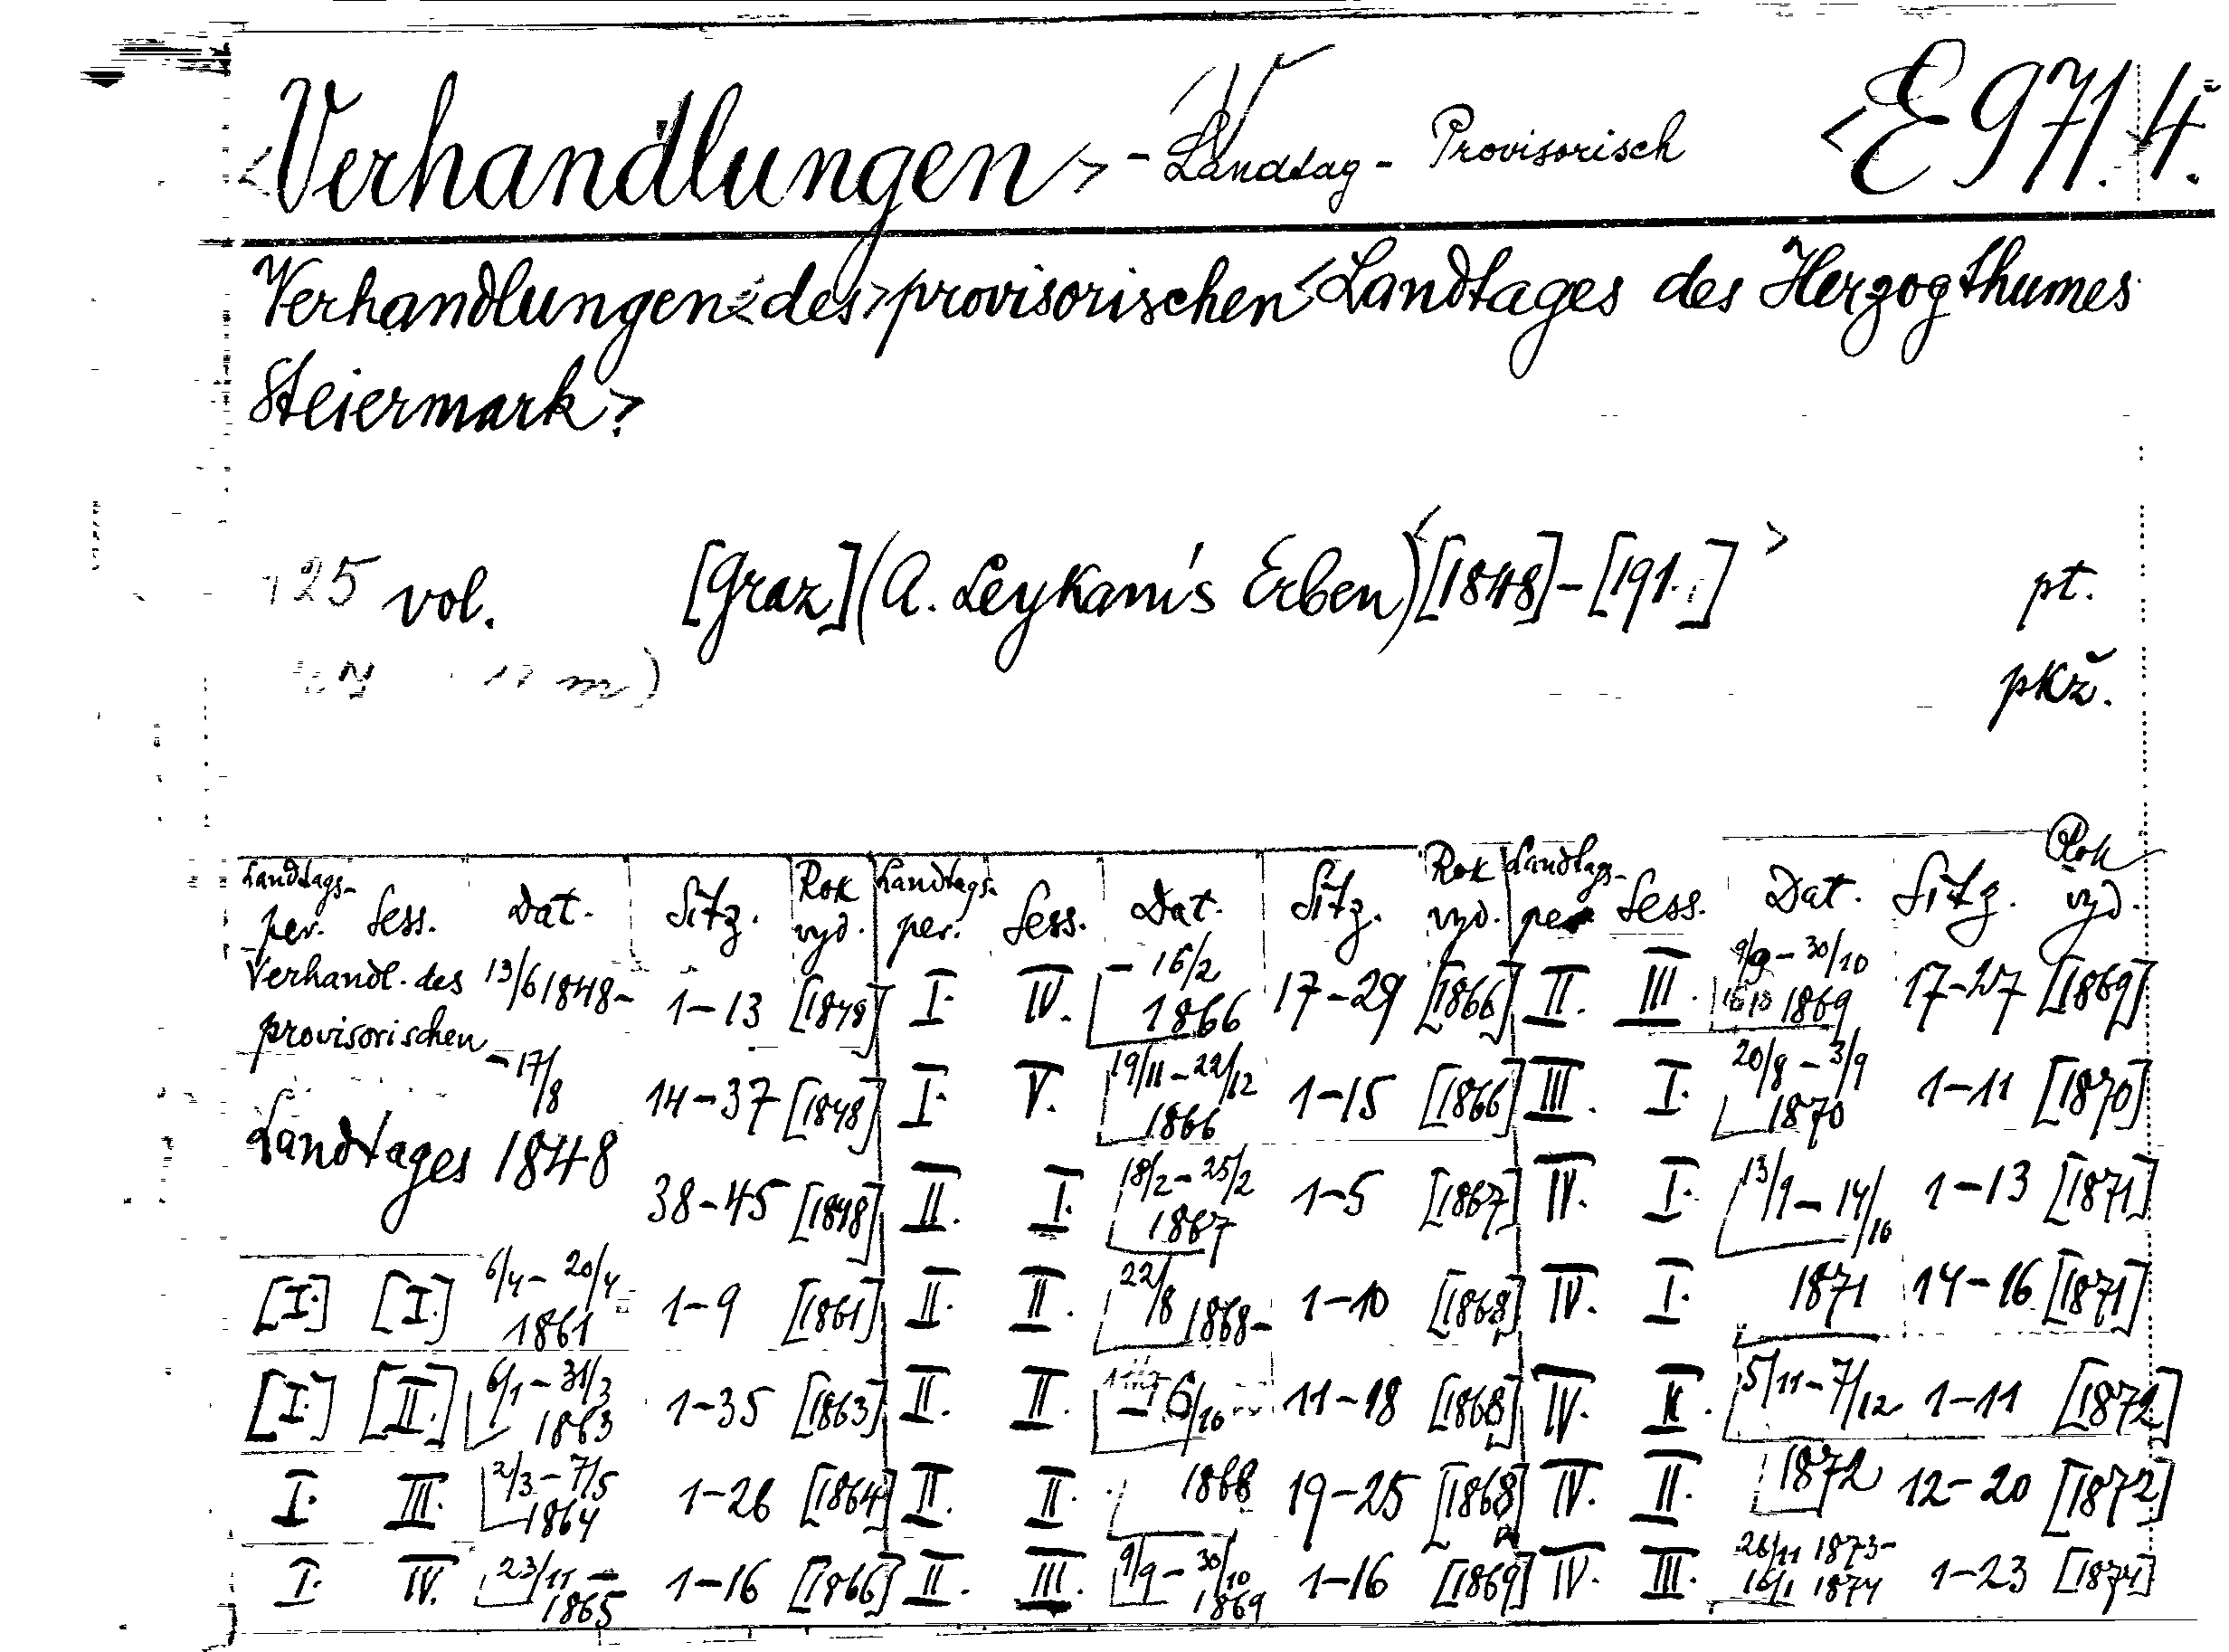 <Verhandlungen> - Landtag - Provisorisch <E 971.4.
Verhandlungen<des>provisorischen<Landtages des Herzogthumes
Steiermark>
25 vol. [Graz](A. Leykam's Erben)<[1848]-[191. ]> pt.
m) pkž.
Landtags-per. Sess. Dat. Sitz. Rok vyd. Landtags-per. Sess. Dat. Sitz. Rok vyd. Landtags-per. Sess. Dat. Sitz. Rok vyd.
Verhandl. des 13/6 1848- 1-13 [1848] I. IV. -16/2 1866 17-29 [1866] II. III. 9/9-30/10 1869 17-27 [1869]
provisorischen -17/8 14-37 [1848] I. V. 19/11-22/12 1866 1-15 [1866] III. I. 20/8-3/9 1870 1-11 [1870]
Landtages 1848 38-45 [1848] II. I. 18/2-25/2 1867 1-5 [1867] IV. I. 13/9-14/10 1-13 [1871]
[I.] [I.] 6/4-20/4 1861 1-9 [1861] II. II. 22/8 1868- 1-10 [1868] IV. I. 1871 14-16 [1871]
[I.] [II.] 6/1-31/3 1863 1-35 [1863] II. II. -6/10 11-18 [1868] IV. II. 5/11-7/12 1-11 [1872]
I. III. 2/3-7/5 1864 1-26 [1864] II. II. 1868 19-25 [1868] IV. II. 1872 12-20 [1872]
I. IV. 23/11- 1865 1-16 [1866] II. III. 9/9-30/10 1869 1-16 [1869] IV. III. 26/11 1873- 16/1 1874 1-23 [1874]